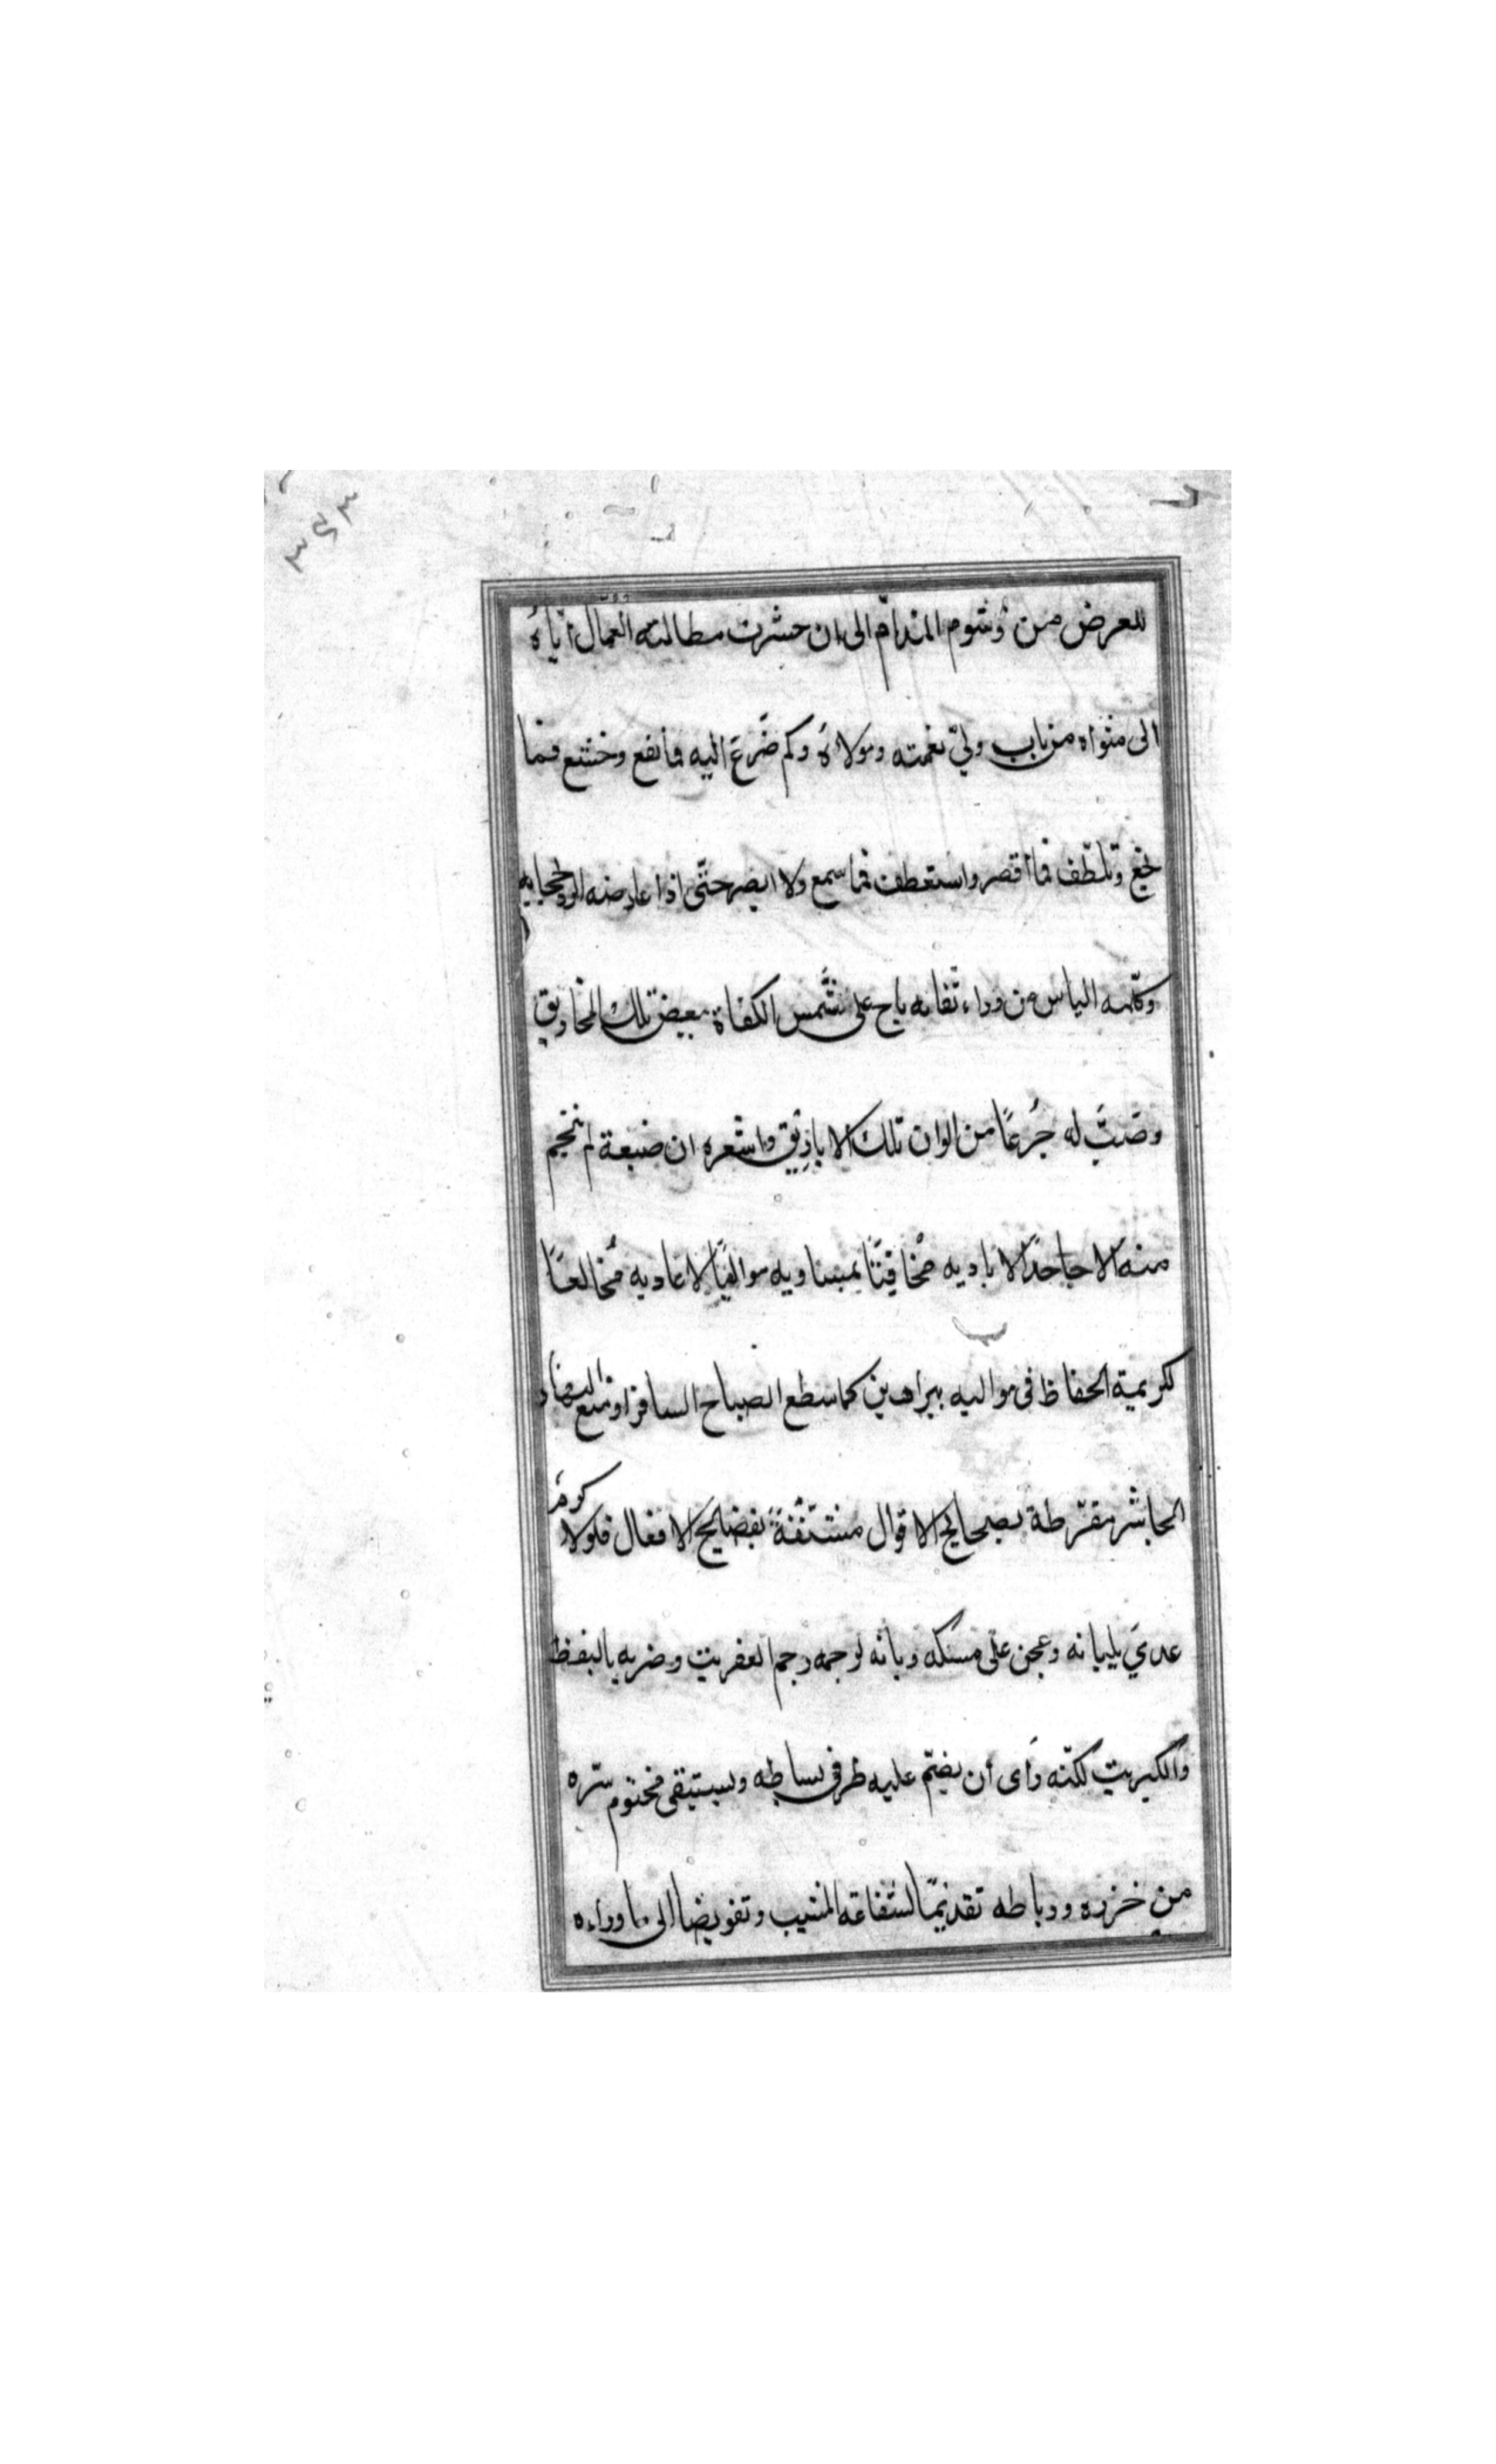 ٣٤٣
للعرض من وُشوم المذامّ الى ان حشرت مطالبته العمال ايّاهُ
الى مثواه من باب وليّ نعمته ومولاهُ وكم ضَرعَ اليه فما نفع وخشع فما
نجع وتلطّف فما أقصر واستعطف فما سمع ولا ابصر حتّى اذا عارضه الردّ بحجابه
وكلّمه الياس من وراء نقابه باح على شمس الكفاة ببعض تلك المخاريق
وصَبَّ له جُرعًا من الوان تلك الاباريق واشعره ان ضبعة لم تنجم
منه الا جاحدًا لاياديه مخافتًا بمساويه مواليًا لاعاديه مُخالعًا
لكريمة الحفاظ فى مواليه ببراهين كما سطع الصباح السافر او متع النهار
الحاشر مقرّطة بصحايح الاقوال مشنّفةً بفضايح الافعال فلولا كرمُ
عدىَ بلبانه وعجن على مسكه وبانه لرجمه رجم العفريت وضربه بالنفط
والكبريت لكنّه رَاى أن يضمّ عليه طرفى بساطه ويستبقى مختوم سرّه
من خرزه ورباطه تقديمًا لشفاعة المشيب وتفويضا الى ما وراءه